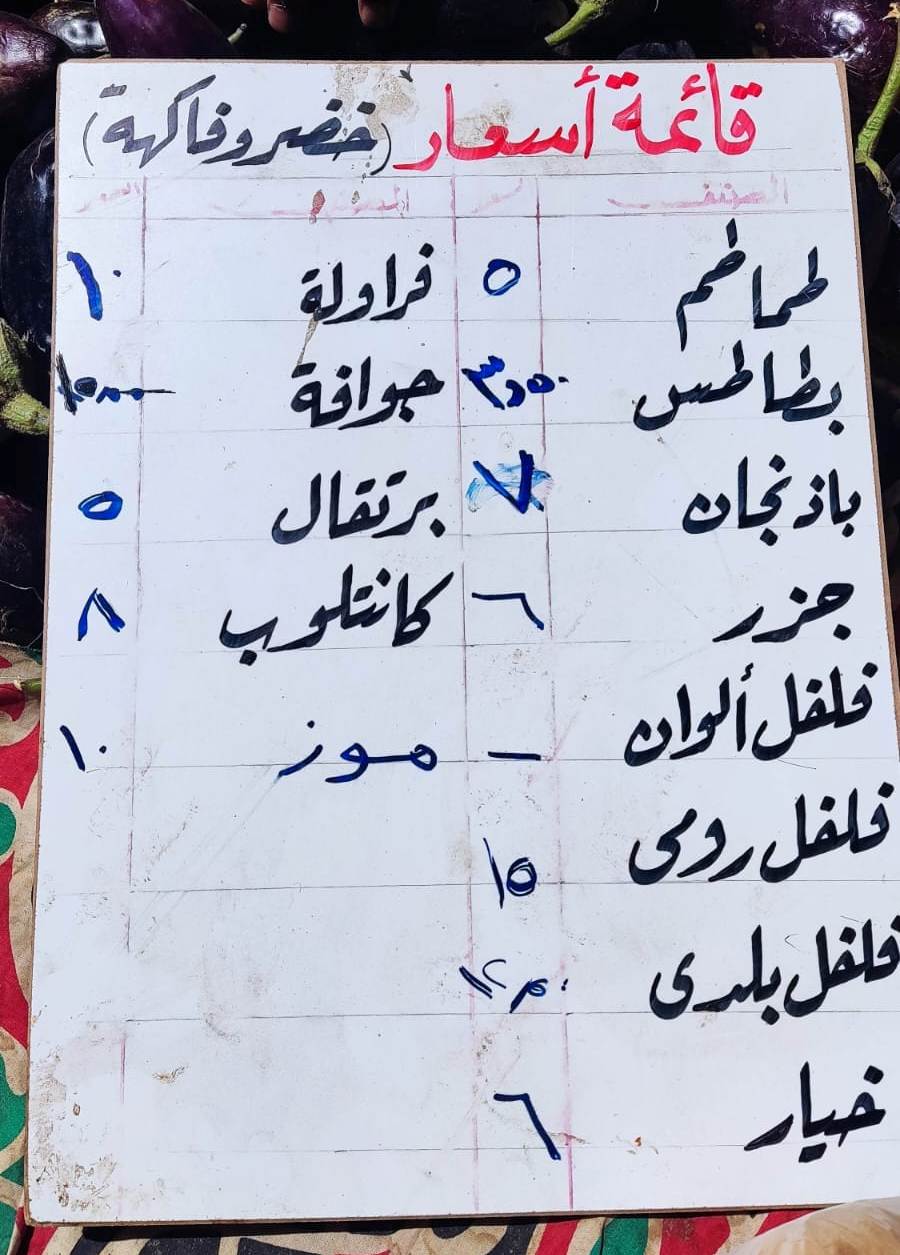 قائمة أسعار (خضر وفاكهة)
الصنف السعر الصنف السعر
طماطم ٥ فراولة ١٠
بطاطس ٣,٥٠ جوافة
باذنجان ٧ برتقال ٥
جزر ٦ كانتلوب ٨
فلفل ألوان - موز ١٠
فلفل رومى ١٥
فلفل بلدى
خيار ٦